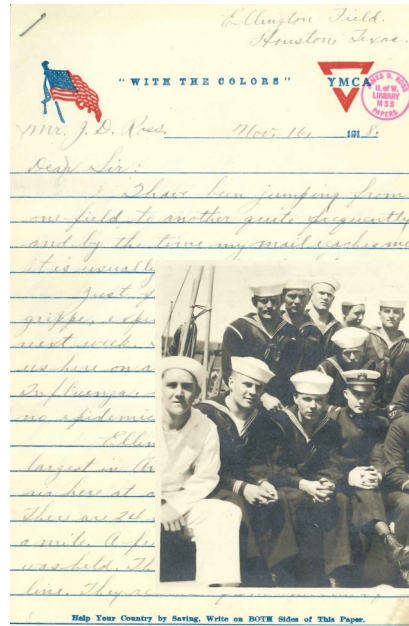 Ellington Field.
Houston, Texas.
"WITH THE COLORS"
YMCA
JAMES D. ROSS
U. of W.
LIBRARY
MSS
PAPERS
Mr. J. D. Ross, Nov. 16, 1918.
Dear Sir:
I have been jumping from
one field to another quite frequently
and by the time my mail reaches me
it is usually
Just
grippe,
next week
us here on a
Influenza.
no epidemic
Ellin
largest in
here at a
There are 24
a mile. A
was held. Th
line. They
Help Your Country by Saving, Write on BOTH Sides of This Paper.